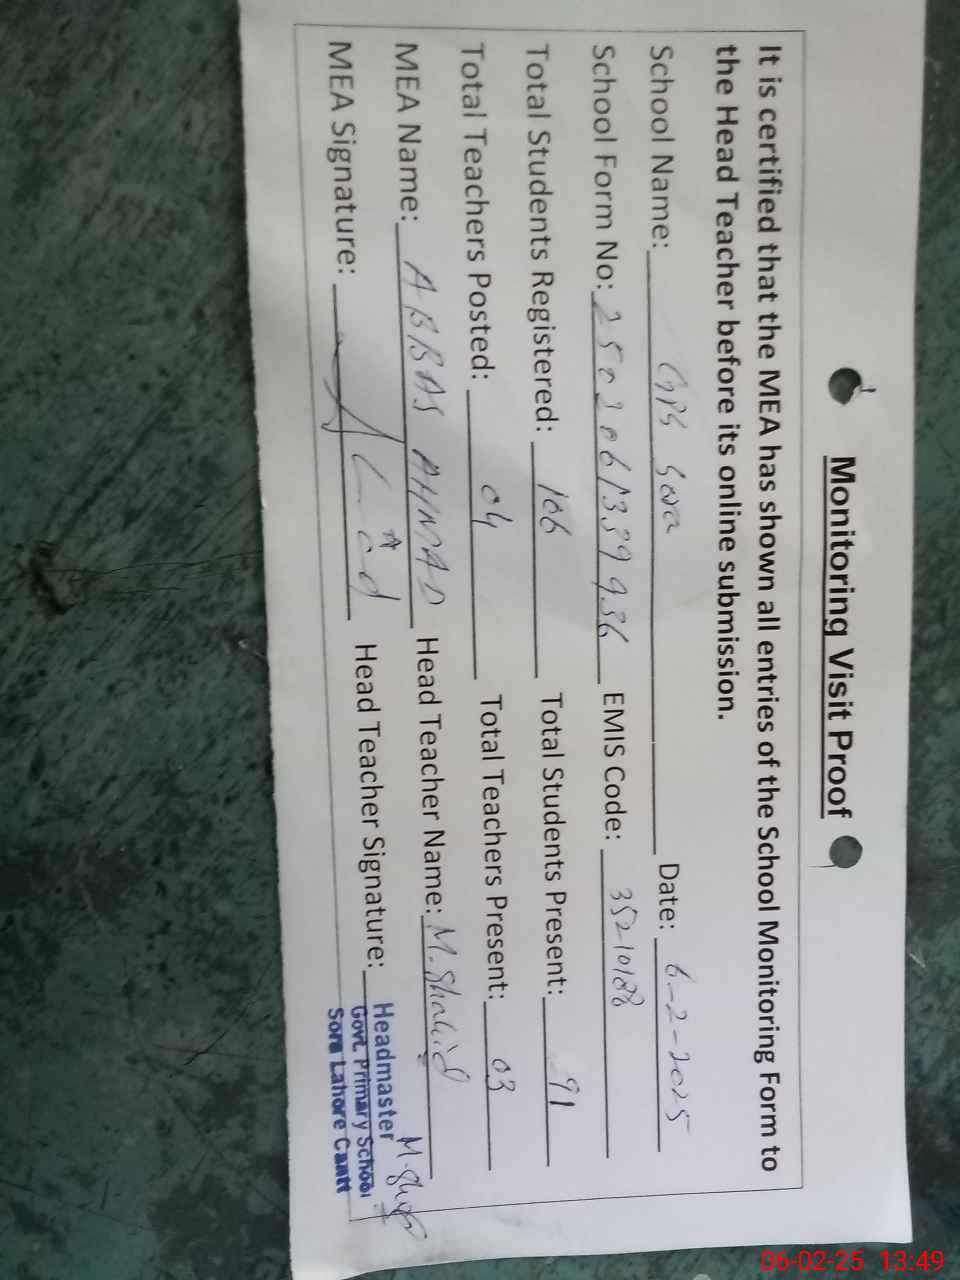 Monitoring Visit Proof
It is certified that the MEA has shown all entries of the School Monitoring Form to
the Head Teacher before its online submission.
School Name: GPS Sora Date: 6-2-2025
School Form No: EMIS Code: 35210188
Total Students Registered: 106 Total Students Present: 91
Total Teachers Posted: 04 Total Teachers Present: 03
MEA Name: ABBAS AHMAD Head Teacher Name: M. Shahid
MEA Signature: Head Teacher Signature:
Headmaster
Govt. Primary School
Sora Lahore Cantt
06-02-25 13:49